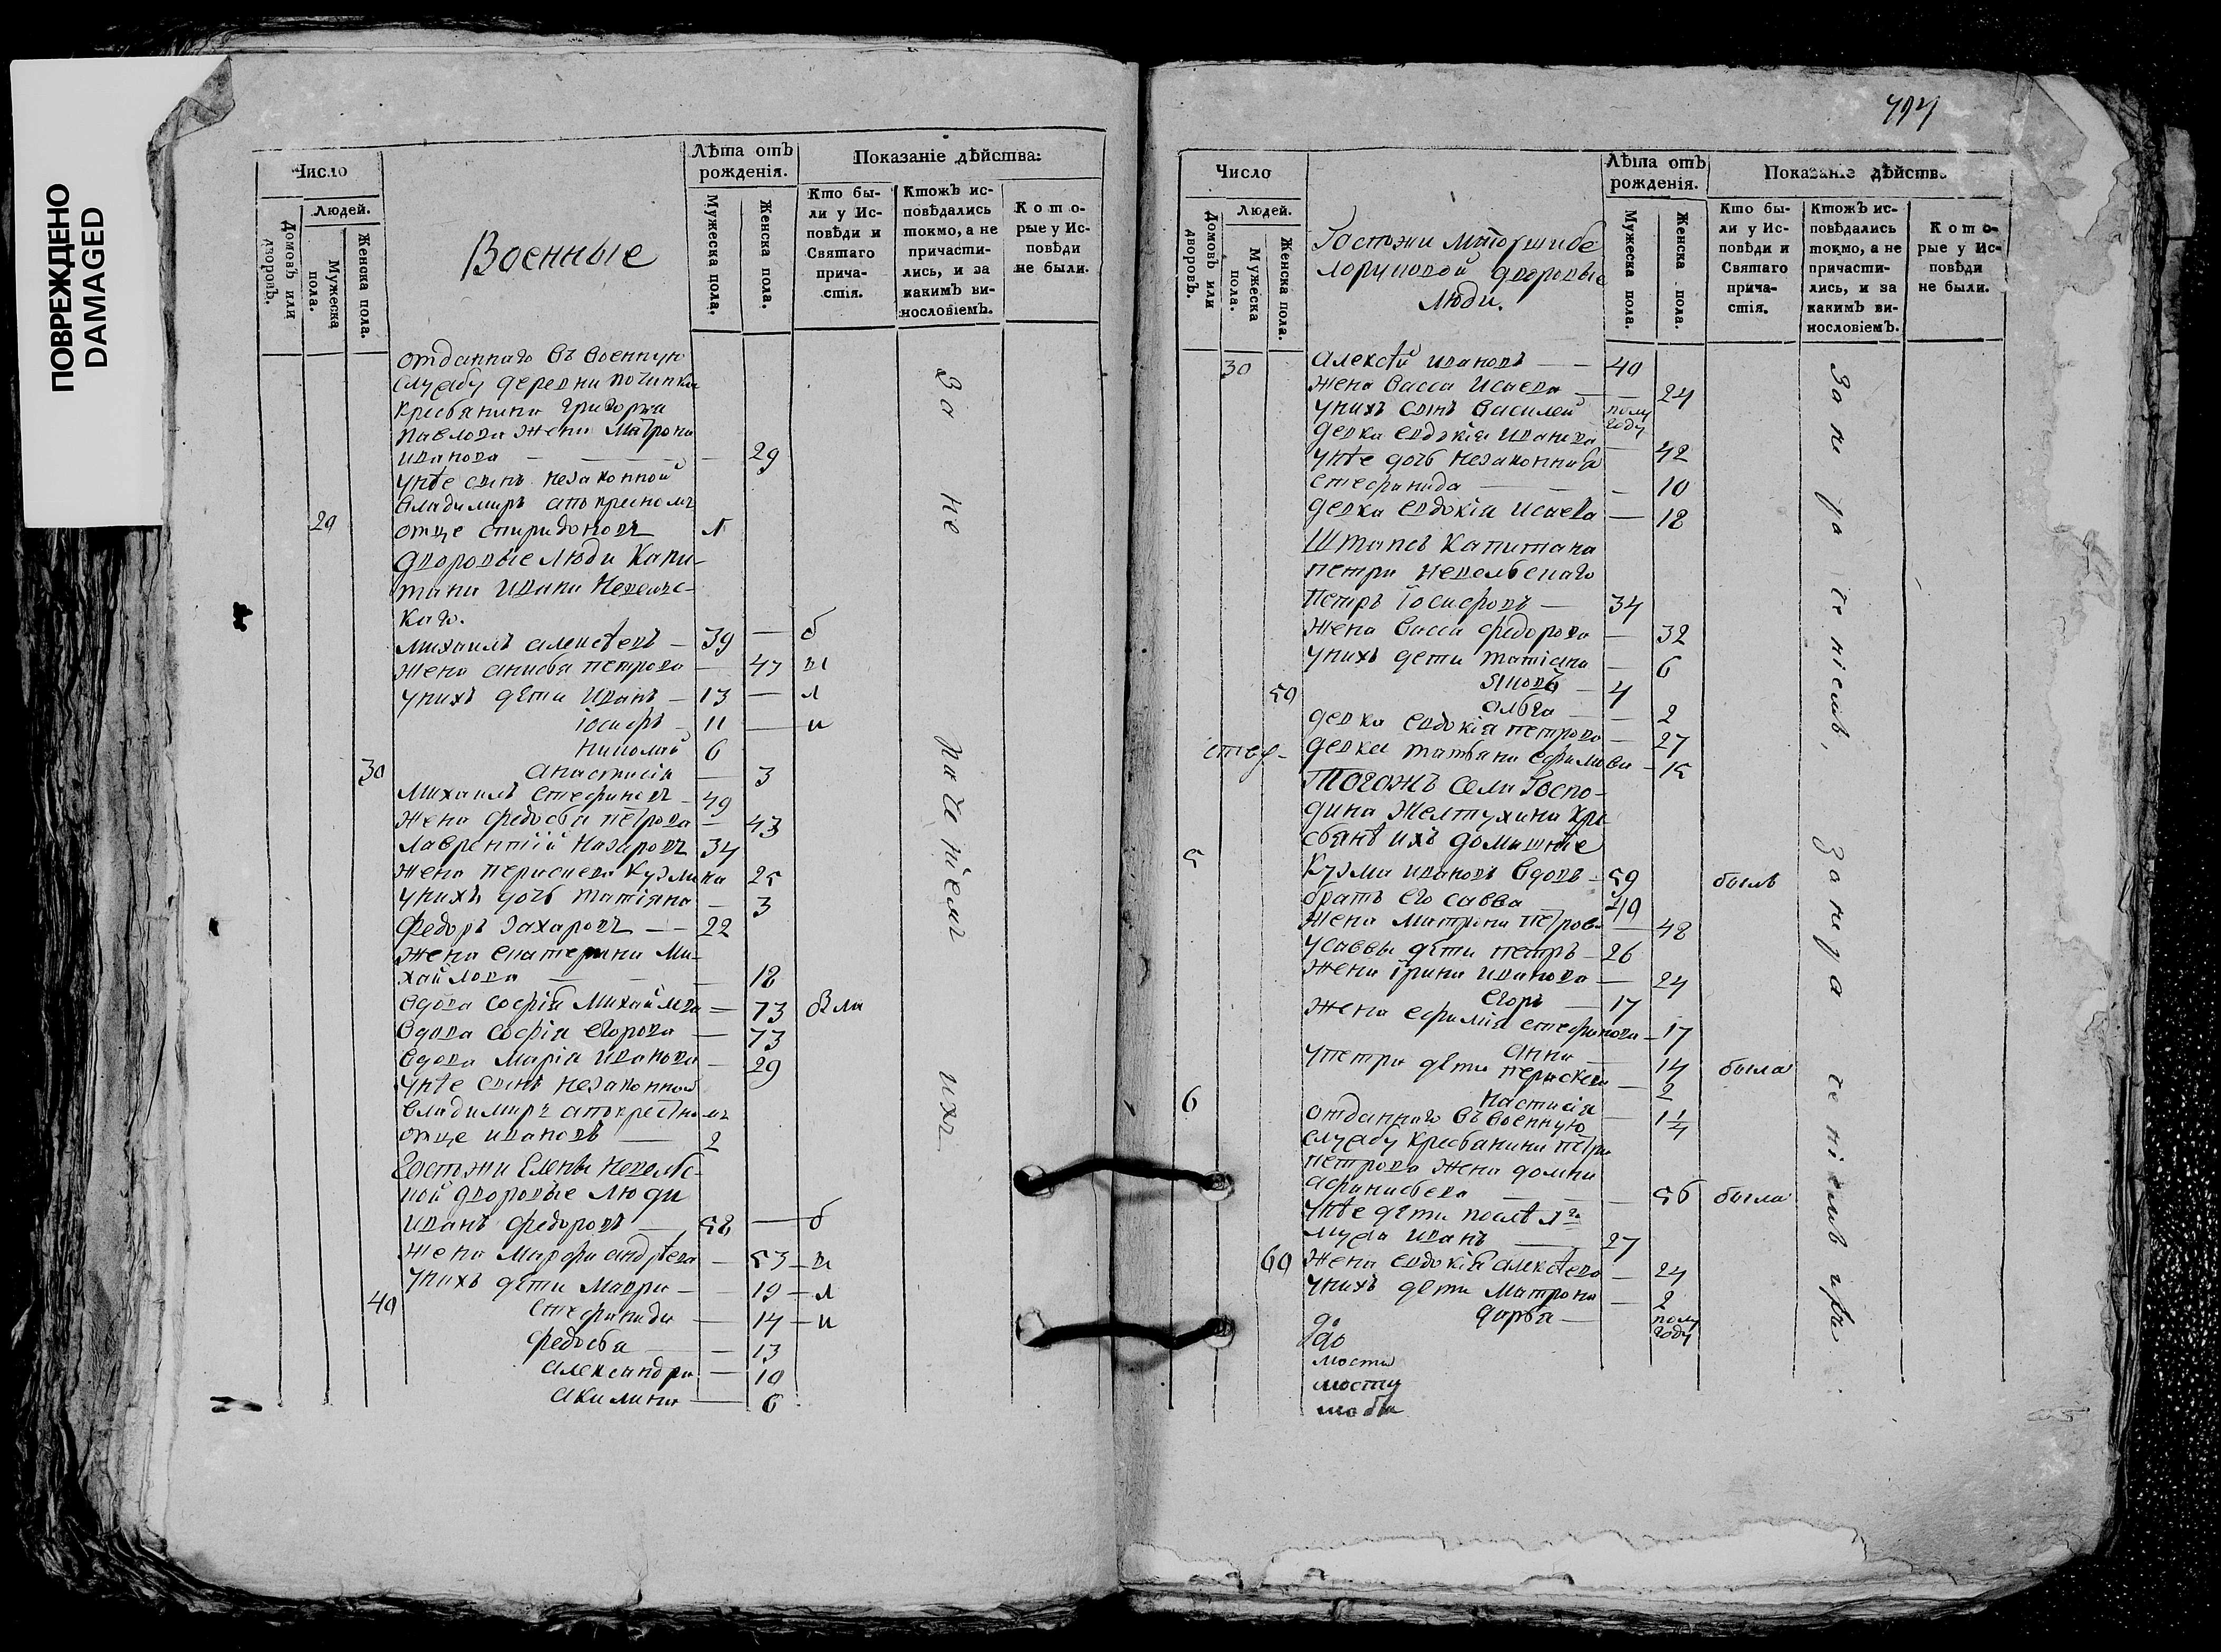 ПОВРЕЖДЕНО
DAMAGED
Число
Людей.
Домовъ или дворовъ.
Мужеска пола.
Женска пола.
Военные
Лѣта отъ рожденія.
Мужеска пола.
Женска пола.
Показаніе дѣйства:
Кто были у Исповѣди и Святаго причастія.
Ктожъ исповѣдались токмо, а не причастились, и за какимъ винословіемъ.
Которые у Исповѣди не были.
отданнаго въ военную
службу деревни починка
крестьянина григорья
павлова жена матрона
иванова — 29
унѣе сынъ незаконной
владимиръ
29 отце спиридоновъ
дворовые люди капи-
тана ивана
каго.
михаилъ алексѣевъ — 39 — б
жена анисья петрова — 47 ы
унихъ дѣти иванъ — 13 — л
іосифъ — 11 — и
николай 6
30 анастасія — 3
михаилъ стефановъ — 49
жена федосья петрова — 43
лаврентій назаровъ 34
жена параскева кузмина 25
унихъ дочь татіяна — 3
федоръ захаровъ — 22
жена екатерина ми-
хайлова — 18
вдова софія михайлова — 73 были
вдова софія егорова — 73
вдова марія иванова — 29
унѣе сынъ незаконной
владимиръ
отце ивановъ — 2
госпожи елены
дворовые люди
иванъ федоровъ — 58 — б
жена марфа андрѣева — 53 — ы
унихъ дѣти мавра — 19 — л
40 стефанида — 14 — и
федосья — 13
александра — 10
акилина — 6
За не раченіемъ ихъ
794
Число
Людей.
Домовъ или дворовъ.
Мужеска пола.
Женска пола.
Госпожи
дворовые
люди.
Лѣта отъ рожденія.
Мужеска пола.
Женска пола.
Показаніе дѣйства
Кто были у Исповѣди и Святаго причастія.
Ктожъ исповѣдались токмо, а не причастились, и за какимъ винословіемъ.
Которые у Исповѣди не были.
30 алексѣй ивановъ — 40
жена васса исаева — 24
унихъ сынъ василей полу году
девка евдокія иванова 42
унѣе дочь незаконная
стефанида — 10
девка евдокія исаева — 18
Штапсъ капитана
петра
петръ іосифовъ — 34
жена васса федорова — 32
унихъ дети татіана — 6
яковъ — 4
50 ольга — 2
девка евдокія петрова — 27
девка татьяна — 15
Тогожъ села Госпо-
дина Желтухина кре-
стьянѣ ихъ домашніе
5 Кузма ивановъ вдовъ — 59 былъ
братъ его савва 49
жена матрона петрова — 48
усаввы дѣти петръ — 26
жена ірина иванова — 24
егоръ — 17
жена ефимія стефанова — 17
анна — 14 была
упетра дѣти параскева — 2
настасія — 1 1/4
6 отданнаго въ военную
службу крестьянина петра
петрова жена домна
афанасьева — 56 была
унѣе дѣти послѣ
мужа иванъ — 27
60 жена евдокія алексѣева — 24
унихъ дѣти матрона — 2
дарья — полу году
до
За не раченіемъ,
За не раченіемъ